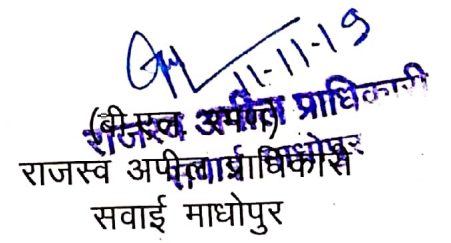 11-11-19
(बी.एल. रमण)
राजस्व अपील प्राधिकारी
सवाई माधोपुर
राजस्व अपील प्राधिकारी
सवाई माधोपुर